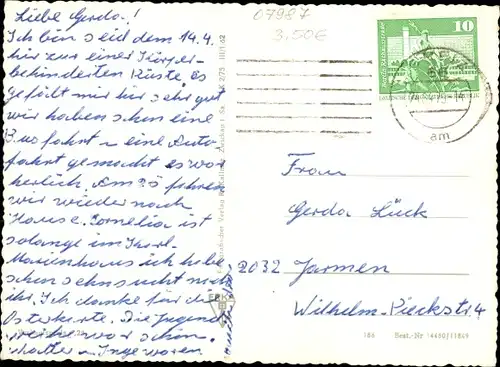 Liebe Gerda!
Ich bin seid dem 14.4.
hir zur einer Körper-
behinderten Rüste es
gefält mir hir sehr gut
wir haben schon eine
Busfahrt u eine Auto
fahrt gemacht es war
herlich. Am 25 fahren
wir wieder nach
Hause. Cornelia ist
solange im
Marienhaus ich habe
schon sehnsucht nach
ihr. Ich danke für die
Osterkarte. Die Jugend
weihe war schön.
u Inge waren
07987
3,50€
10
am
Frau
Gerda Lück
2032 Jarmen
Wilhelm-Pieckstr. 4
166 Best.-Nr. 14460/11849